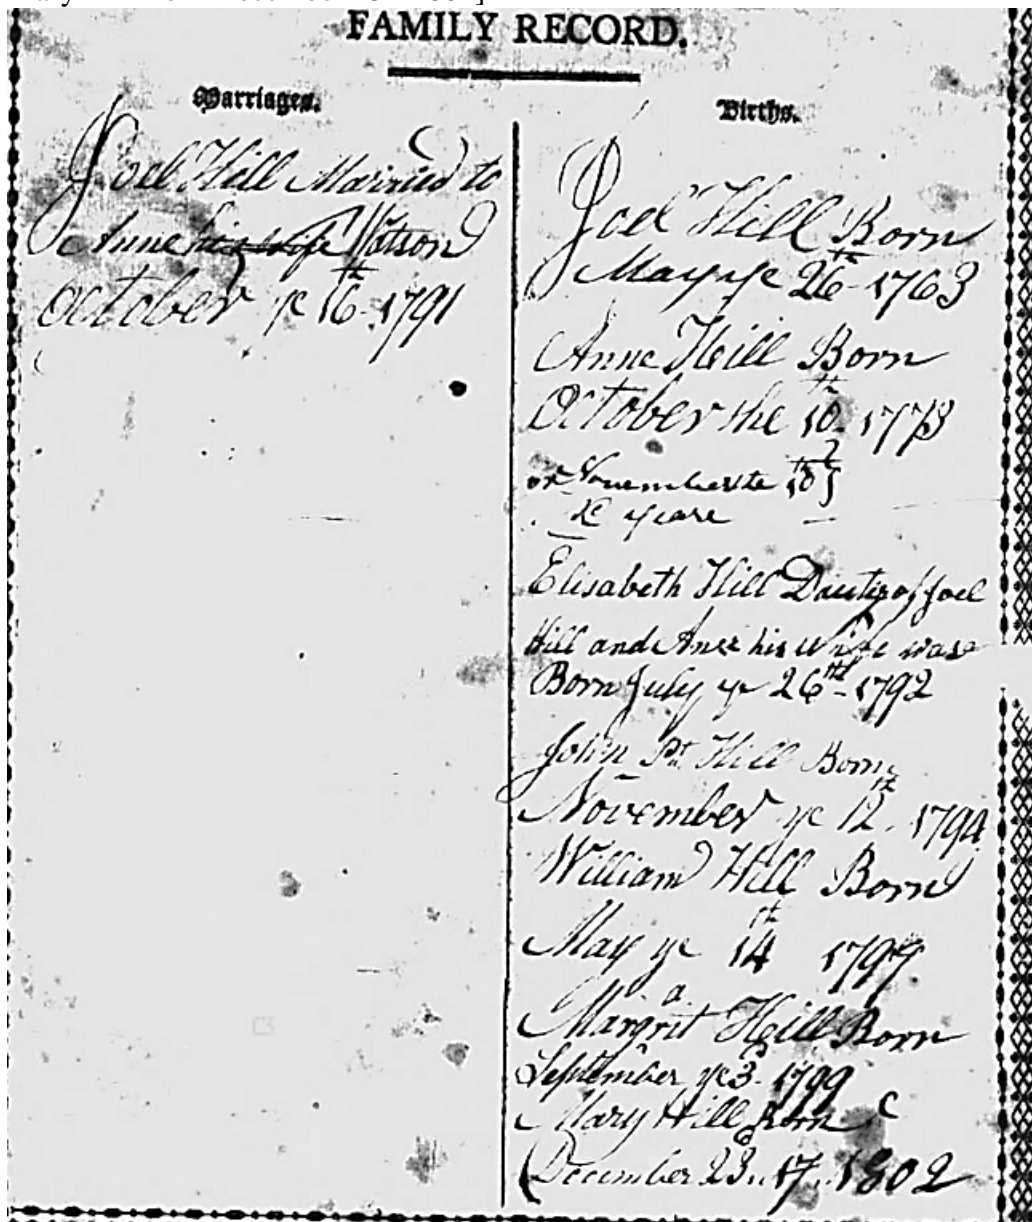 FAMILY RECORD.
Marriages.
Joel Hill Married to
Anne his wife Watson
October ye 16th 1791
Births.
Joel Hill Born
May ye 26th 1763
Anne Hill Born
October the 10th 1773
or November te 10th
years
Elisabeth Hill Dauter of Joel
Hill and Anne his wife was
Born July ye 26th 1792
John Hill Born
November ye 12th 1794
William Hill Born
May ye 14th 1797
Margrit a Hill Born
September ye 3d 1799
Mary Hill Born
December 23d 1802